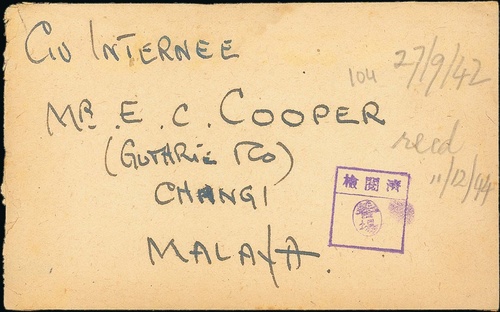 CIV INTERNEE
104
27/9/42
MR. E. C. COOPER
(GUTHRIE CO)
recd
11/12/44
CHANGI
檢閱濟
MALAYA.